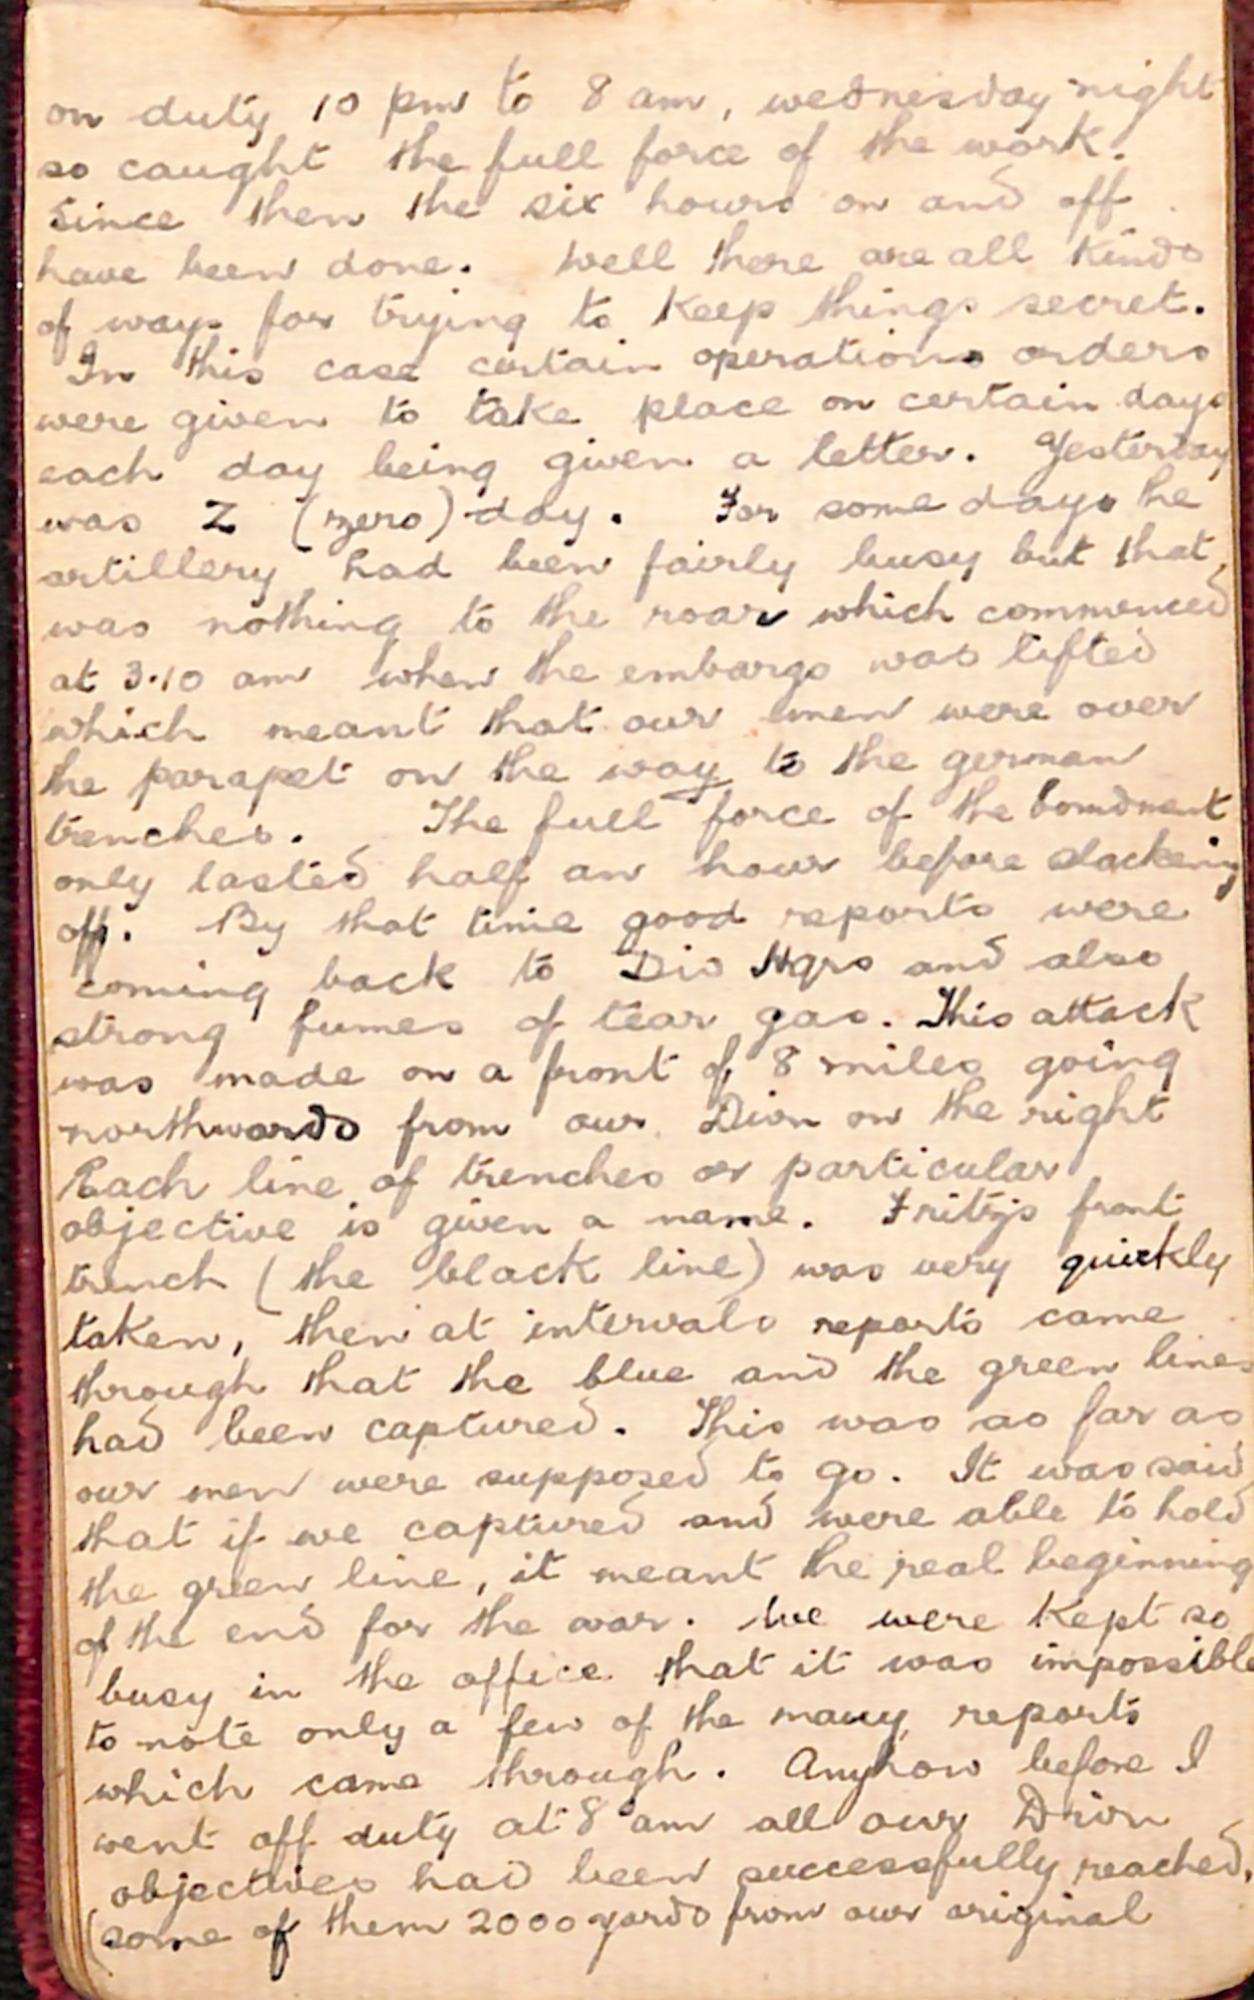 on duty 10 pm to 8 am, wednesday night
so caught the full force of the work.
Since then the six hours on and off
have been done. Well there are all kinds
of ways for trying to keep things secret.
In this case certain operations orders
were given to take place on certain days
each day being given a letter. Yesterday
was Z (zero) day. For some days the
artillery had been fairly busy but that
was nothing to the roar which commenced
at 3.10 am when the embargo was lifted
which meant that our men were over
the parapet on the way to the german
trenches. The full force of the bomdment
only lasted half an hour before slackening
off. By that time good reports were
coming back to Div Hqrs and also
strong fumes of tear gas. This attack
was made on a front of 8 miles going
northwards from our Dion on the right
Each line of trenches or particular
objective is given a name. Fritzjs front
trench (the black line) was very quickly
taken, then at intervals reports came
through that the blue and the green lines
had been captured. This was as far as
our men were supposed to go. It was said
that if we captured and were able to hold
the green line, it meant the real beginning
of the end for the war. We were kept so
busy in the office that it was impossible
to note only a few of the many reports
which came through. Anyhow before I
went off duty at 8 am all our Dvion
objectives had been successfully reached,
(some of them 2000 yards from our original